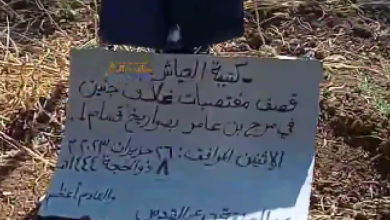 كتيبة العياش
قصف مغتصبات غلاف جنين
في مرج بن عامر بصواريخ قسام 1
الاثنين الموافق: ٢٦ حزيران ٢٠٢٣م
٨ ذو الحجة ١٤٤٤هـ
والقادم أعظم